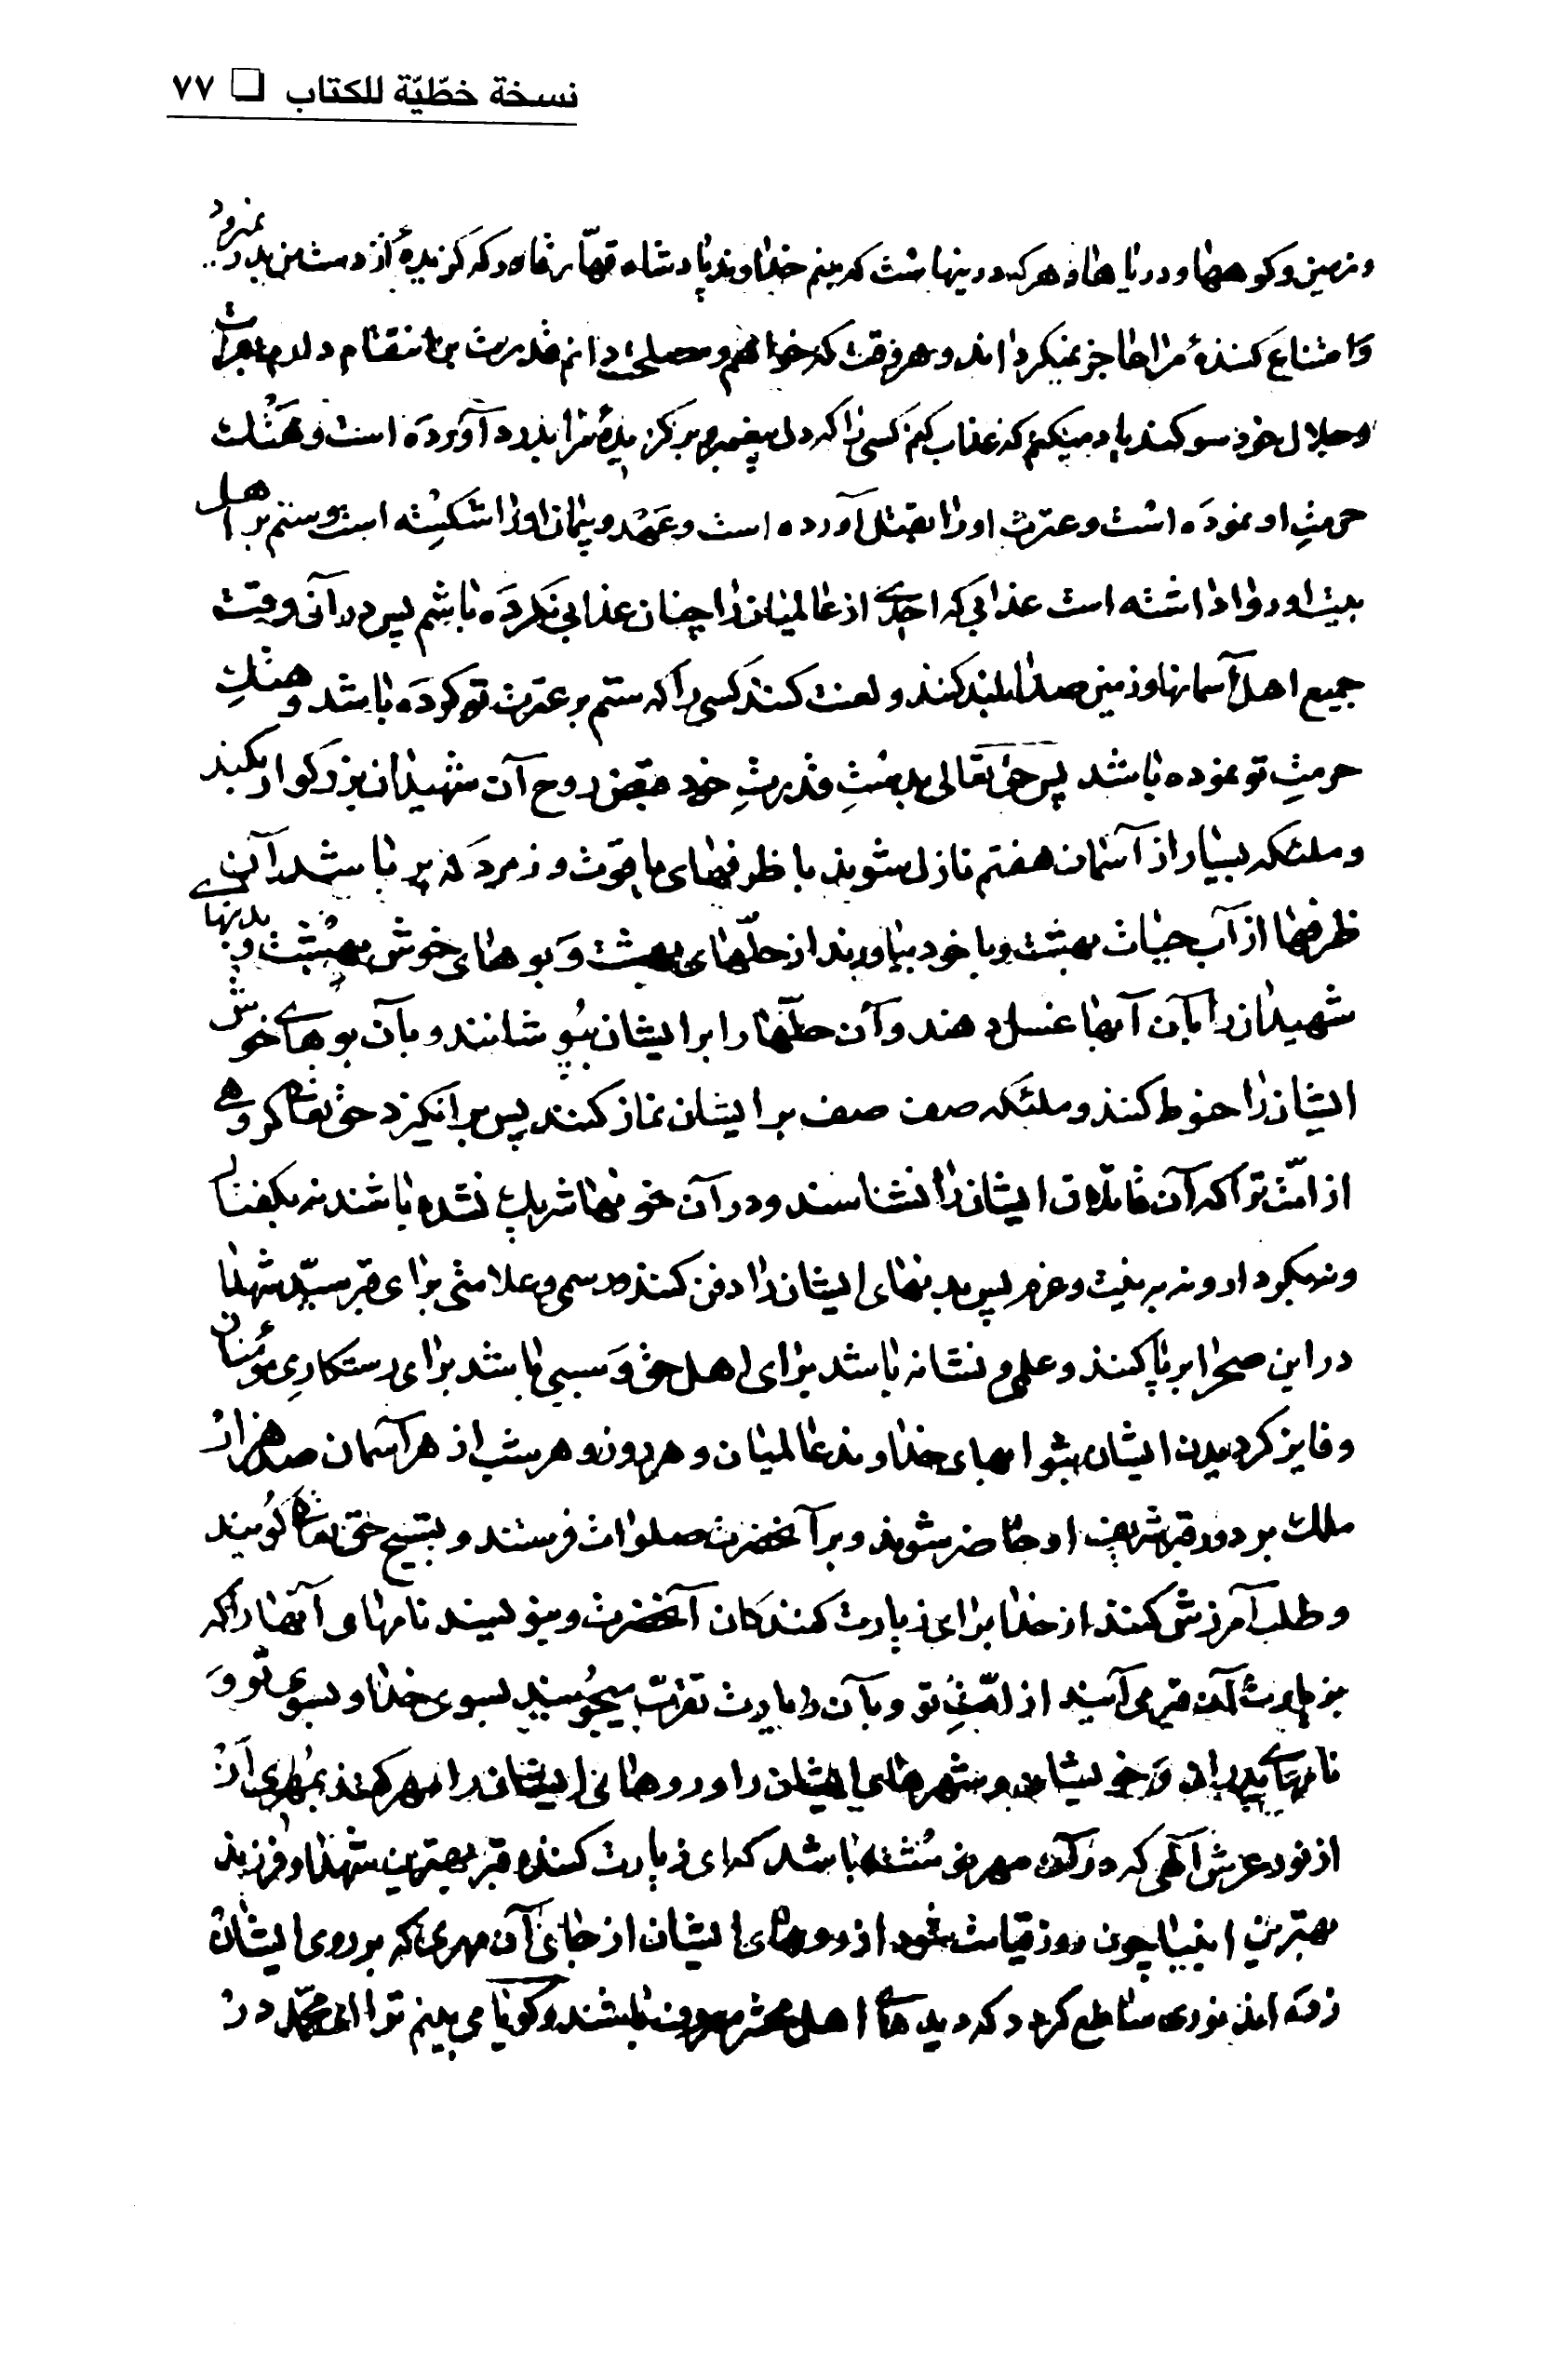 نسخة خطّيّة للكتاب □ ٧٧
و زمین و کوهها و دریاها و هر که در اینهاست که منم خداوند پادشاه قهار قادر که گریزنده از دست من بدر نمیرود
و امتناع کننده مرا عاجز نمیگرداند و هر وقت که خواهم و مصلحت دانم قدرت بر انتقام دارم بعزت
و جلال خود سوگند یاد میکنم که عذاب کنم کسی را که دل پیغمبر و برگزیده مرا بدرد آورده است و هتک
حرمت او نموده است و عترت او را بقتل آورده است و عهد و پیمان او را شکسته است و ستم بر اهل
بیت او روا داشته است عذابی که احدی از عالمیان را چنان عذابی نکرده باشم پس در آن وقت
جمیع اهل آسمانها و زمین صدا بلند کنند و لعنت کنند کسی را که ستم بر عترت تو کرده باشد و هتک
حرمت تو نموده باشد پس حق تعالی بدست قدرت خود قبض روح آن شهیدان بزرگوار بکند
و ملئکه بسیار از آسمان هفتم نازل شوند با ظرفهای یاقوت و زمرد که پر باشد آن
ظرفها از آب حیات بهشت و با خود بیاورند از حلّهای بهشت و بوهای خوش بهشت و بدنهای
شهیدان را بآن آبها غسل دهند و آن حلّها را بر ایشان بپوشانند و بآن بوهای خوش
ایشان را حنوط کنند و ملئکه صف صف بر ایشان نماز کنند پس برانگیزد حق تعالی گروهی
از امّت ترا که آن قاتلان ایشان را نشناسند و در آن خونها شریک نشده باشند نه بگفتار
و نه بکردار و نه به نیّت و عزم پس بدنهای ایشان را دفن کنند و رسمی و علامتی برای قبر سیّد شهدا
در این صحرا برپا کنند و علم و نشانه باشد برای اهل حق و سببی باشد برای رستکاری مؤمنان
و فایز گردیدن ایشان بثوابهای خداوند عالمیان و هر روز و هر شب از هر آسمان صد هزار
ملک بر دور قبر شریف او حاضر شوند و بر آنحضرت صلوات فرستند و تسبیح حق تعالی گویند
و طلب آمرزش کنند از خدا برای زیارت کنندکان آنحضرت و مینویسند نامهای آنها را که
بزیارت آن قبر می‌آیند از امّت تو و بآن زیارت تقرّب میجویند بسوی خدا و بسوی تو و
نامهای پدران و خویشان و شهرهای ایشان را و روهای ایشان را مهر کنند بمهری از
از نور عرش الهی که در آن مهر نوشته باشد که ای زیارت کننده قبر بهترین شهدا و فرزند
بهترین انبیا چون روز قیامت شود از روهای ایشان از جای آن مهری که بر روی ایشان
زده اند نوری ساطع گردد که دیدهای اهل محشر باشند و گویا می بینم ترا ای محمّد در